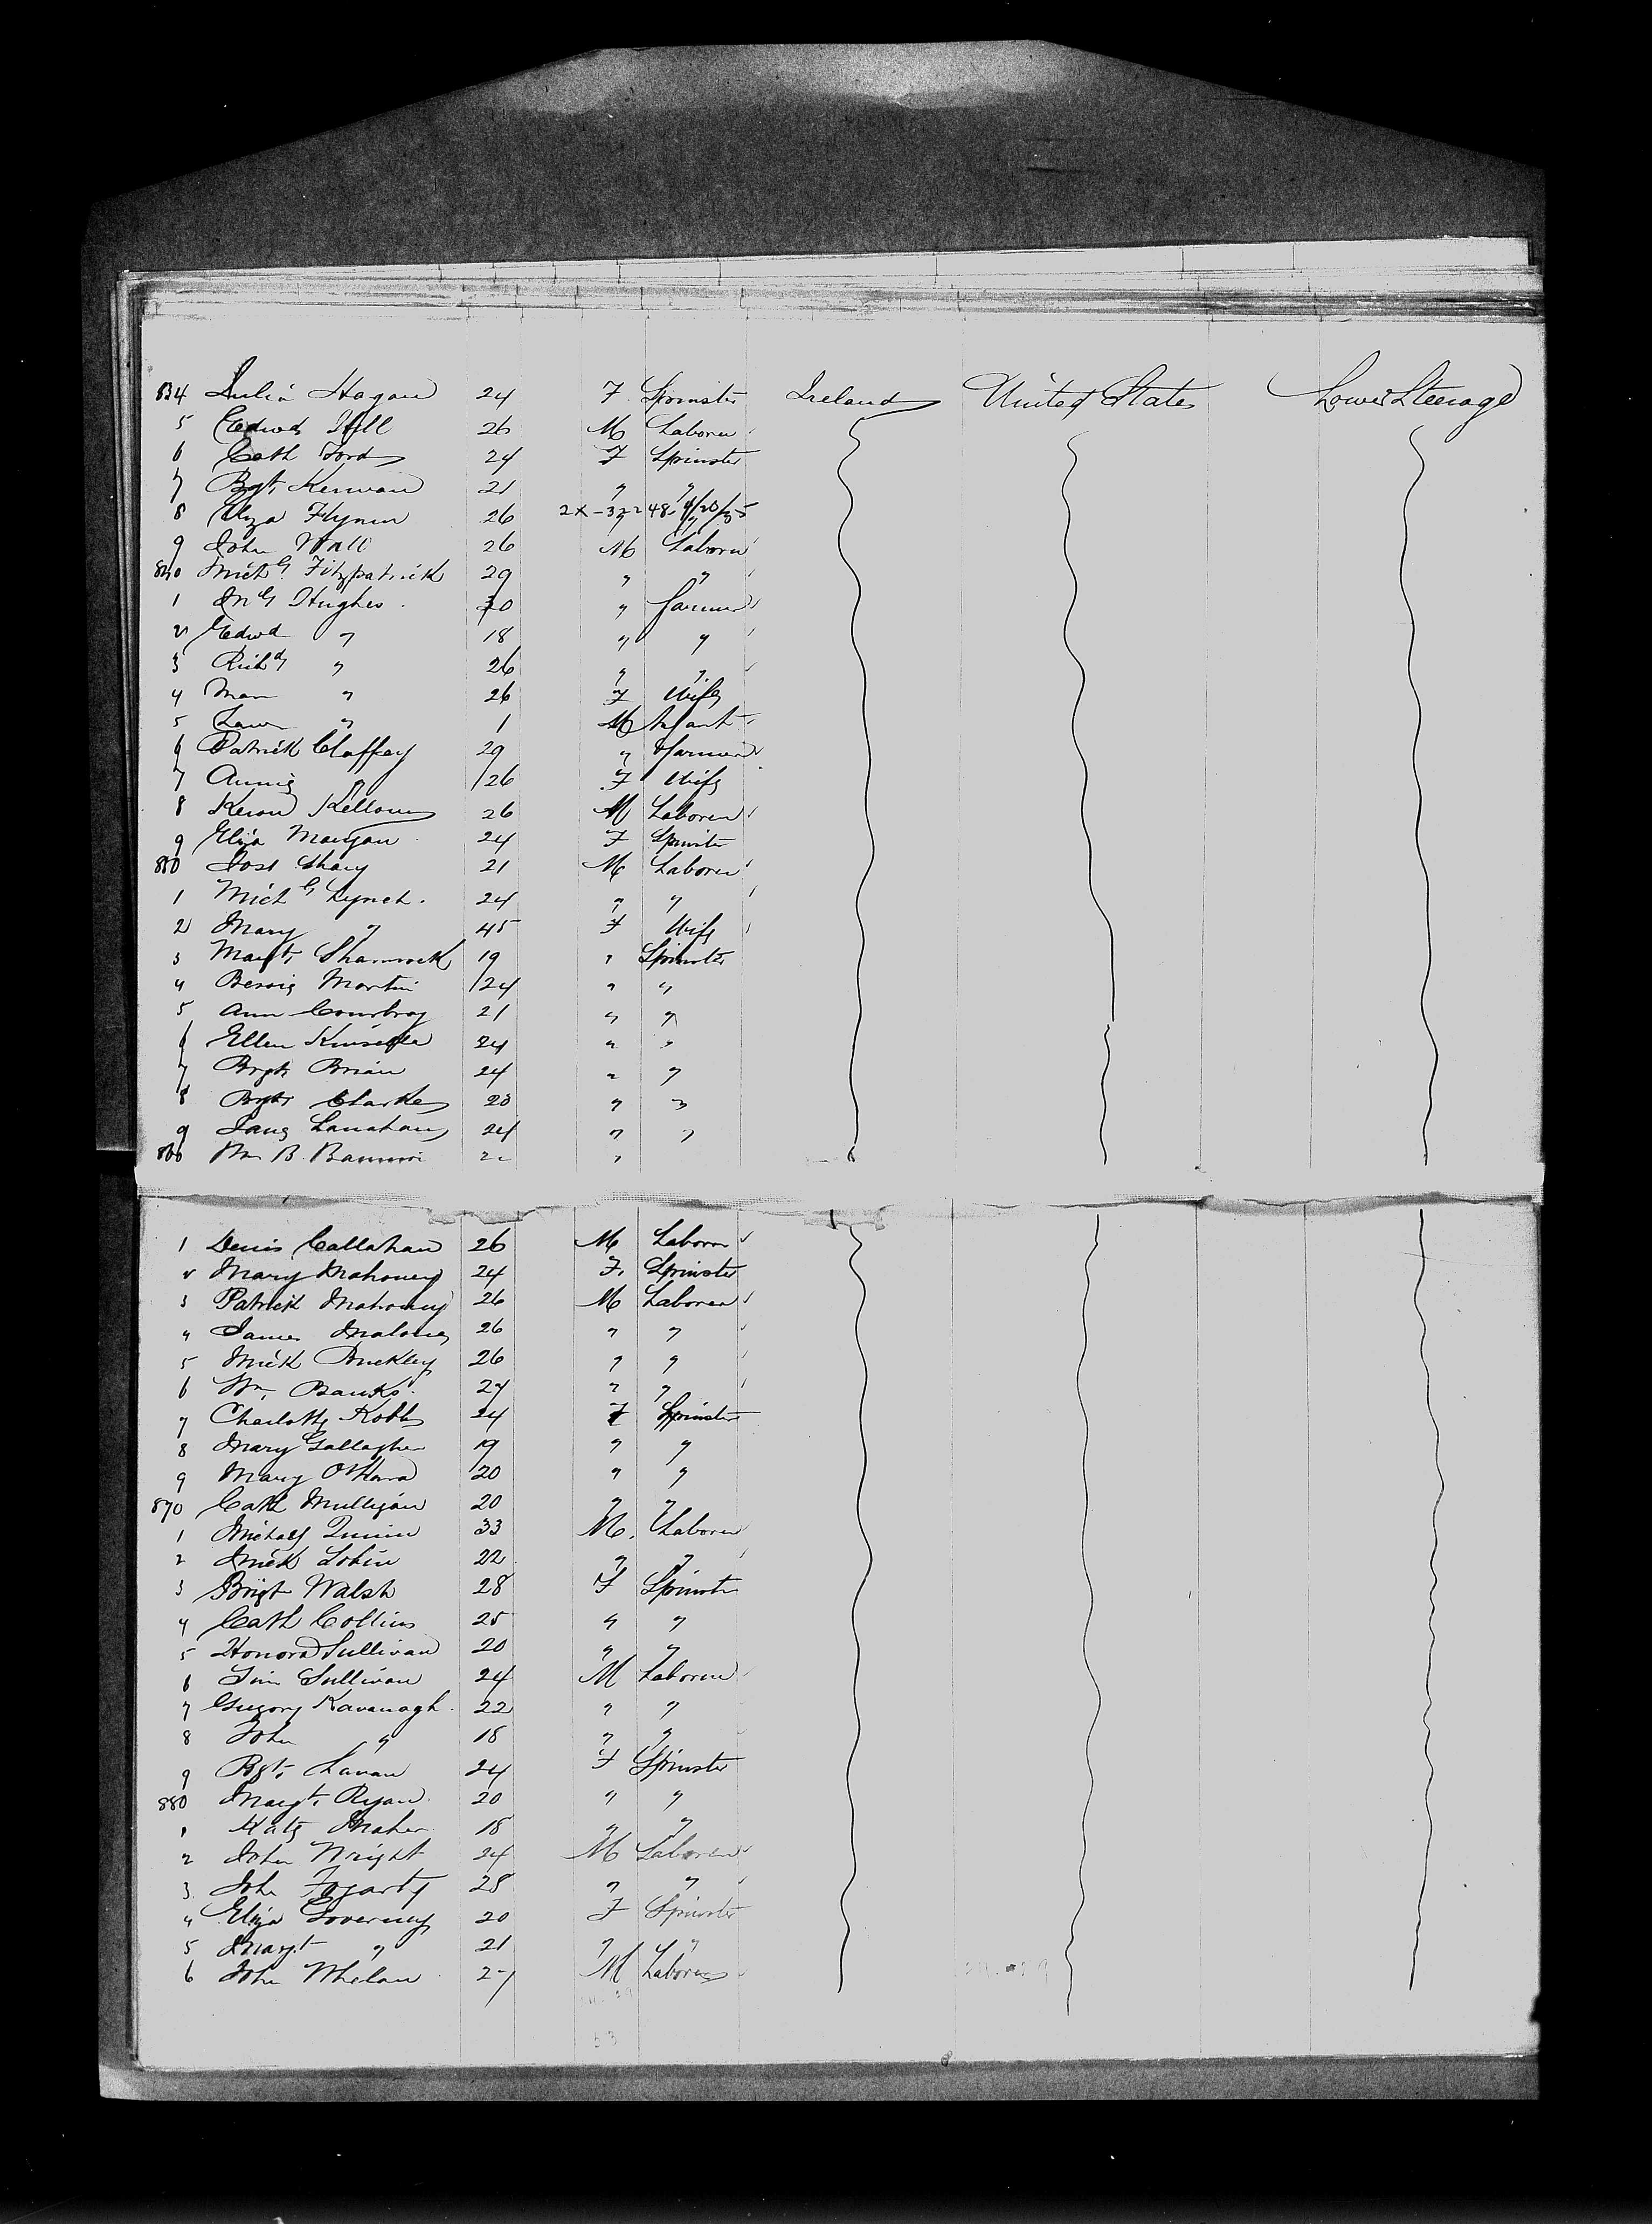 834 Julia Hagan 24 F. Spinster Ireland United States Lower Steerage
5 Edwd Hill 26 M Laborer
6 Cath Ford 24 F Spinster
7 Bgt. Kerwan 21 " "
8 Eliza Flynn 26 2X-322 48. " "
9 John Wall 26 M Laborer
840 Michl. Fitzpatrick 29 " "
1 Hughes 30 " farmer
2 Edwd " 18 " "
3 Richd " 26 " "
4 Mary " 26 F Wife
5 " 1 M Infant
6 Patrick Claffey 29 " farmer
7 Annie " 26 F Wife
8 26 M Laborer
9 Eliza 24 F Spinster
850 21 M Laborer
1 Michl Lynch. 24 " "
2 Mary " 45 F Wife
3 Margt. Shamrock 19 " Spinster
4 Bessie Martin 24 " "
5 Ann 21 " "
6 Ellen Kinsella 24 " "
7 Brgt Brian 24 " "
8 Bgt Clarke 20 " "
9 Jane Lanahan 24 " "
860 B. "
1 Denis Callahan 26 M Laborer
2 Mary Mahoney 24 F. Spinster
3 Patrick Mahoney 26 M Laborer
4 James Maloney 26 " "
5 Mick Buckley 26 " "
6 Wm. Banks. 27 " "
7 Charlotte Robb 24 F Spinster
8 Mary Gallagher 19 " "
9 Mary O'Hara 20 " "
870 Cath Mulligan 20 " "
1 Michael Quinn 33 M. Laborer
2 Mick Tobin 22 " "
3 Brigt Walsh 28 F Spinster
4 Cath Collins 25 " "
5 Honora Sullivan 20 " "
6 Tim Sullivan 24 M Laborer
7 Gregory Kavanagh. 22 " "
8 John " 18 " "
9 Bgt. Lavan 24 F Spinster
880 Margt. Ryan 20 " "
1 Kate Maher 18 " "
2 John Wright 24 M Laborer
3 John Fogarty 28 " "
4 Eliza 20 F Spinster
5 Margt " 21 " "
6 John Whelan 27 M Laborer